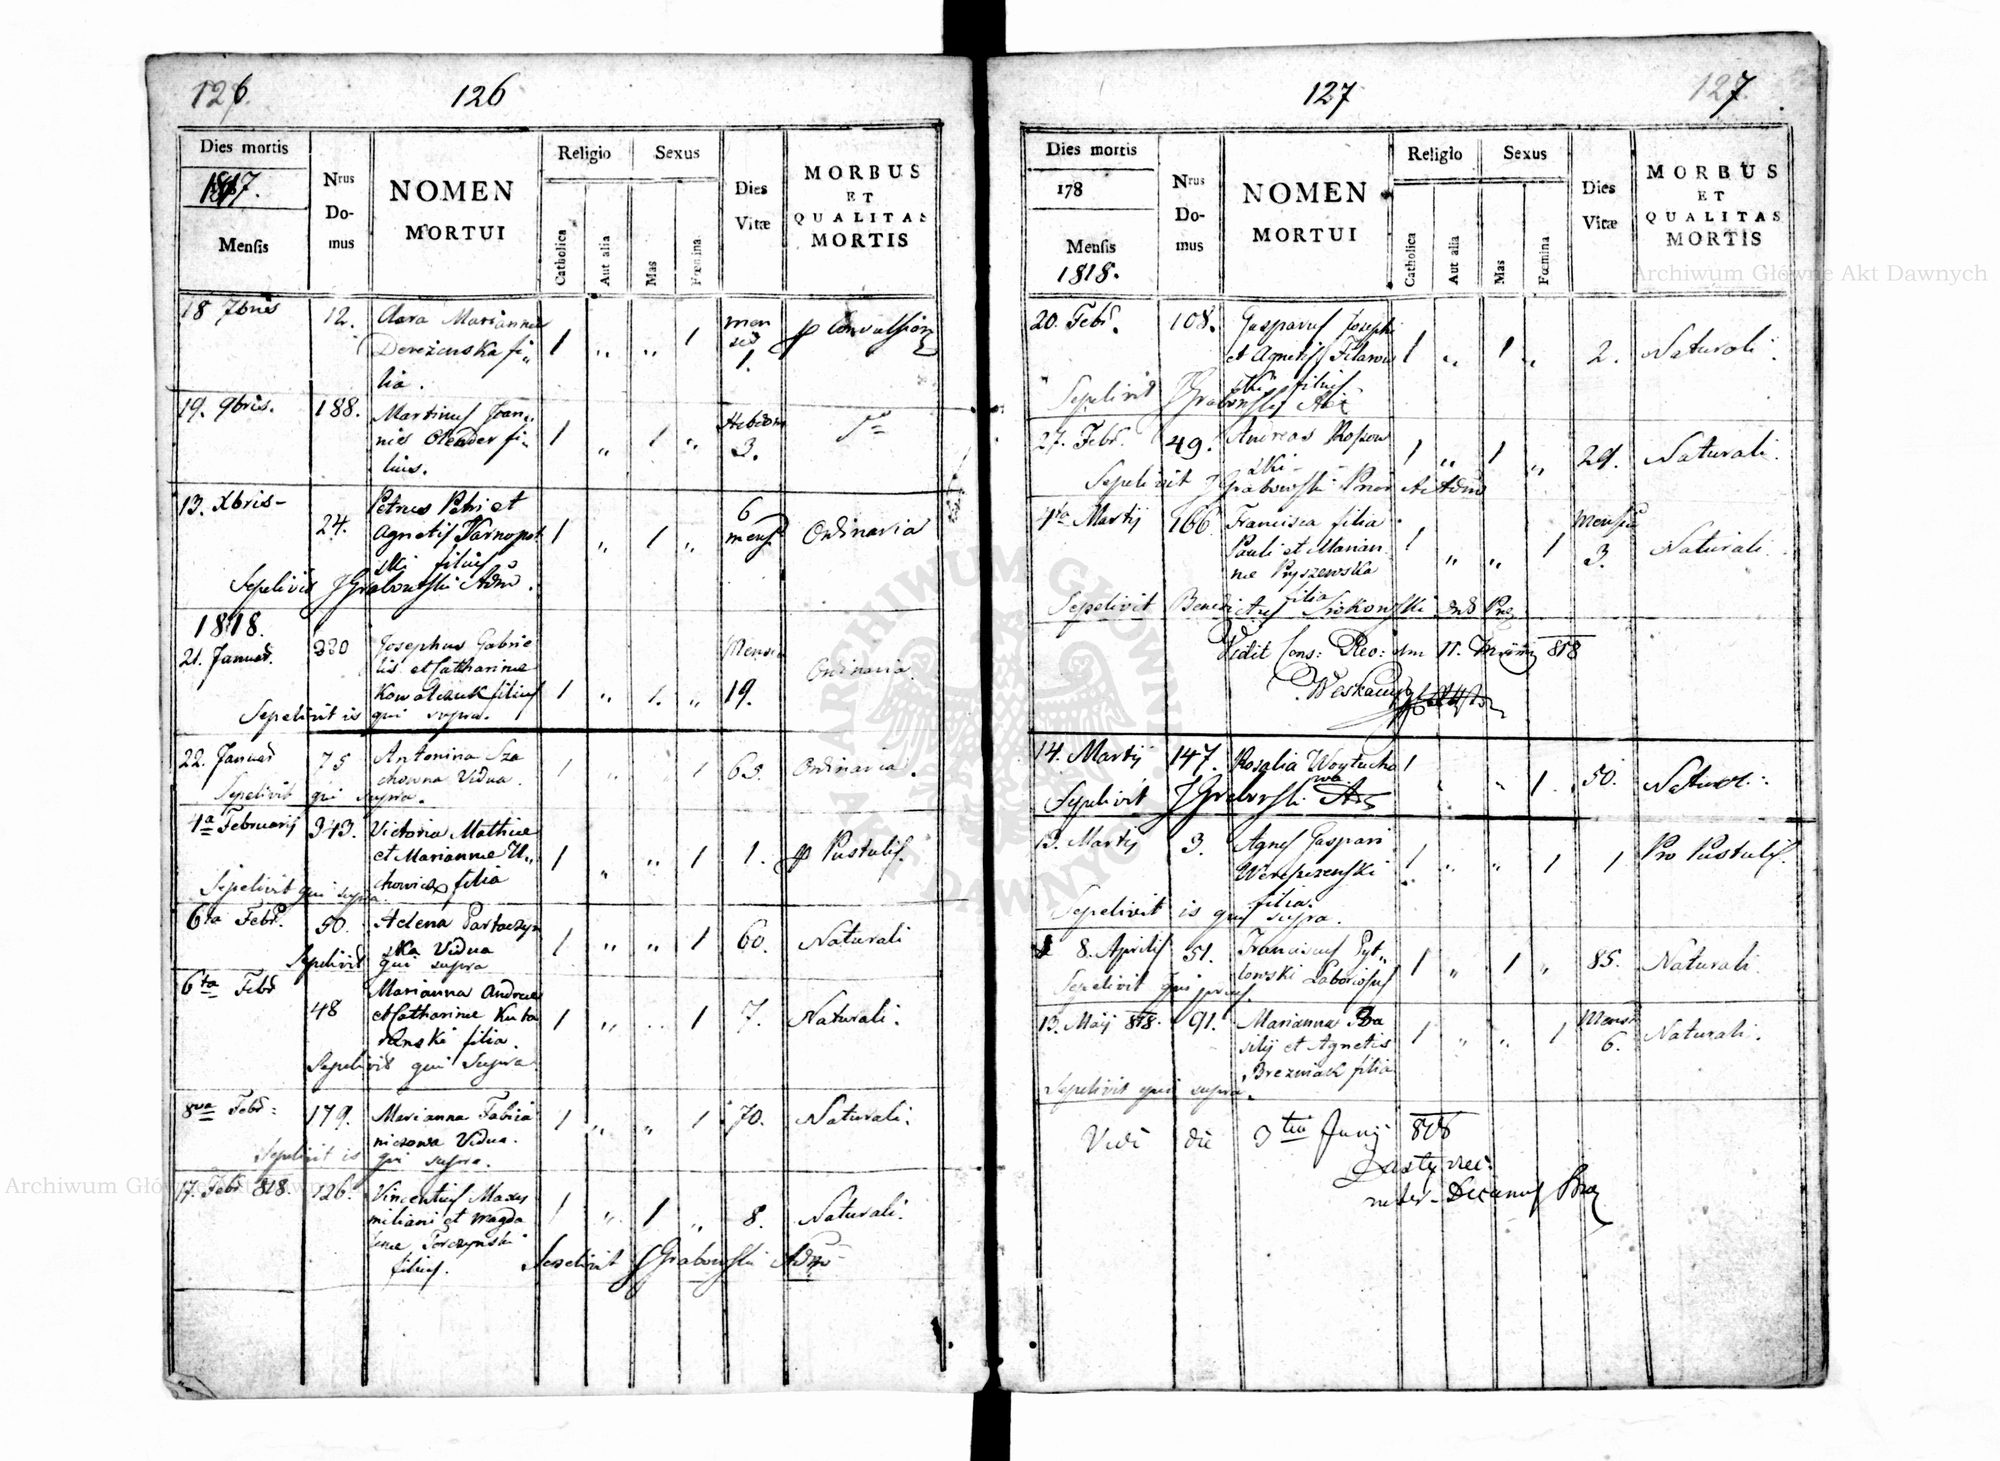 126.
126
Dies mortis
1817.
Mensis
Nrus
Do-
mus
NOMEN
MORTUI
Religio
Catholica
Aut alia
Sexus
Mas
Fœmina
Dies
Vitæ
MORBUS
ET
QUALITAS
MORTIS
18 7bris 12. Clara Marianna men
Dereżenska fi„ 1 „ „ 1 ses p convulsion
lia. 1.
19. 9bris. 188. Martinus Joan„ Hebdom
nis Olender fi„ 1 „ 1 „ 3.
lius.
13. Xbris 24. Petrus Petri et 6
Agnetis Tarnopol 1 „ 1 „ mens Ordinaria
ski filius
Sepelivit J Grabowski Adm.
1818.
21. Januar. 320 Josephus Gabrie Menses
lis et Catharinae Ordinaria
Kowalczuk filius 1 „ 1. „ 19.
Sepelivit is qui supra.
22. Januar 75 Antonina Sza
chowna Vidua. 1 „ 1 63. Ordinaria.
Sepelivit qui supra.
4a Februarij 343. Victoria Mathiae
et Mariannae U„ 1 „ „ 1 1. p Pustulis.
chowicz filia
Sepelivit qui supra
6ta Febr. 50. Helena Partaczyn
ska Vidua 1 „ „ 1 60. Naturali
Sepelivit qui supra
6ta Febr 48 Marianna Andreae
et Catharinae Kuba 1 „ „ 1 7. Naturali.
ranski filia.
Sepelivit qui supra
8va Febr: 179. Marianna Fabia 1 „ „ 1 70. Naturali.
niczowa Vidua.
Sepelivit is qui supra.
17. Febr 818. 126. Vincentius Maxy
miliani et Magda 1 „ 1 „ 8. Naturali.
lenae Torczynski
filius. Sepelivit J Grabowski Adm
127
127.
Dies mortis
178
Mensis
1818.
Nrus
Do-
mus
NOMEN
MORTUI
Religio
Catholica
Aut alia
Sexus
Mas
Fœmina
Dies
Vitæ
MORBUS
ET
QUALITAS
MORTIS
20. Febr. 108. Gasparus Josephi
et Agnetis Filanow 1 „ 1 „ 2. Naturali.
ski filius
Sepelivit J Grabowski
27. Febr. 49. Andreas Rossow 1 „ 1 „ 29. Naturali.
ski
Sepelivit J Grabowski Prior
4ta Martij 166 Francisca filia Menses
Pauli et Marian 1 „ „ 1 3. Naturali.
nae Pryszewska
filia
Sepelivit Benedictus
Vidit Cons: 818
14. Martij 147. Rosalia Woytucho 1
wa „ „ 1. 50. Natural:
Sepelivit J Grabowski
13. Martij 3. Agnes Gaspari
1 „ „ 1 1 Pro Pustulis.
filia.
Sepelivit is qui supra.
8. Aprilis 51. Franciscus Pyt„
lowski Laboriosus 1 „ 1 „ 85. Naturali
Sepelivit qui
13. Maij 818. 91. Marianna Ba Mens
silij et Agnetis 1 „ „ 1 6. Naturali.
Brezniak filia
Sepelivit qui supra.
Vidi die 3tia Junij 818
Decanus
Archiwum Główne Akt Dawnych
Archiwum Główne Akt Dawnych
ARCHIWUM GŁÓWNE AKT DAWNYCH